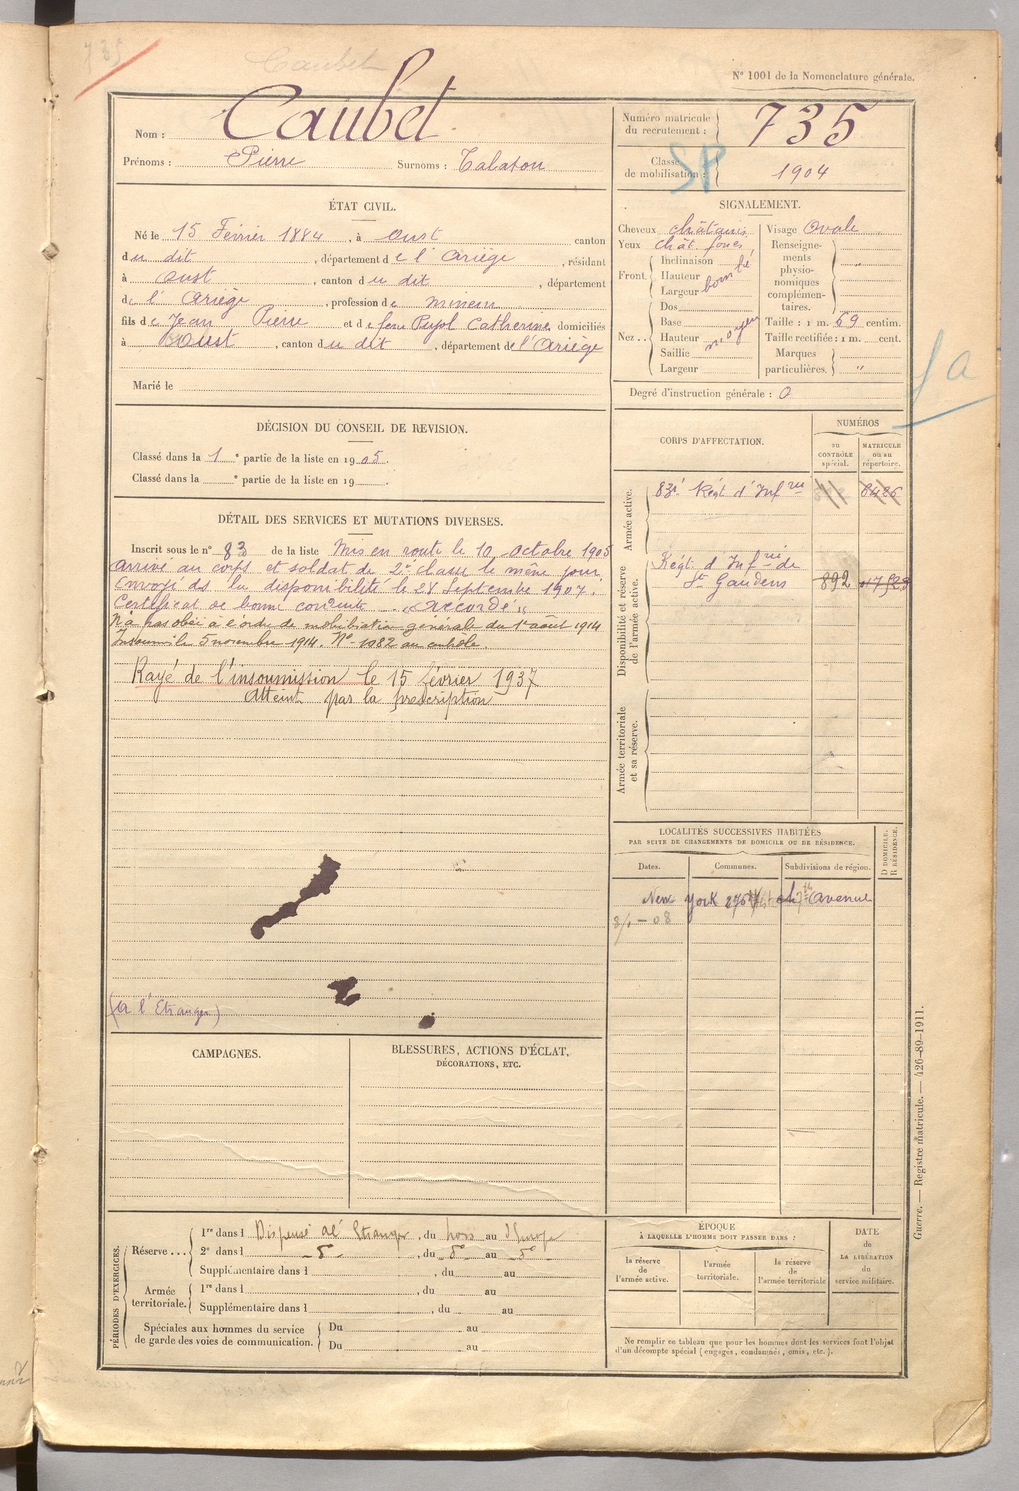 735
Caubet
N° 1001 de la Nomenclature générale.
Nom : Caubet
Prénoms : Pierre Surnoms : Talaton
Numéro matricule du recrutement : 735
Classe de mobilisation : 1904
SP
ÉTAT CIVIL.
Né le 15 Février 1884, à Oust canton
du dit, département de l'Ariège, résidant
à Oust, canton du dit, département
de l'Ariège, profession de mineur
fils de Jean Pierre et de feue Pujol Catherine domiciliés
à Oust, canton du dit, département de l'Ariège
Marié le
SIGNALEMENT.
Cheveux châtains
Yeux chât. foncé
Front. Inclinaison
Hauteur
Largeur
bombé
Nez .. Dos
Base
Hauteur
Saillie
Largeur
moyen
Visage Ovale
Renseignements physionomiques complémentaires. "
Taille : 1 m. 69 centim.
Taille rectifiée : 1 m. cent.
Marques particulières. "
Degré d'instruction générale : 0
DÉCISION DU CONSEIL DE REVISION.
Classé dans la 1e partie de la liste en 1905.
Classé dans la e partie de la liste en 19 .
DÉTAIL DES SERVICES ET MUTATIONS DIVERSES.
Inscrit sous le n° 83 de la liste Mis en route le 10 Octobre 1905
arrivé au corps et soldat de 2e classe le même jour.
Envoyé ds la disponibilité le 28 Septembre 1907.
Certificat de bonne conduite „Accordé"
N'a pas obéi à l'ordre de mobilisation générale du 1er août 1914
Insoumis le 5 novembre 1914. N° 1082 au contrôle.
Rayé de l'insoumission le 15 février 1937
Atteint par la prescription
(a l'Etranger)
CORPS D'AFFECTATION.
NUMÉROS
AU CONTRÔLE spécial.
MATRICULE ou au répertoire.
Armée active.
83e Régt d'Infrie 8486
Disponibilité et réserve de l'armée active.
Régt d'Infrie de
St Gaudens 892
Armée territoriale et sa réserve.
LOCALITÉS SUCCESSIVES HABITÉES
PAR SUITE DE CHANGEMENTS DE DOMICILE OU DE RÉSIDENCE.
Dates. Communes. Subdivisions de région. D DOMICILE. R RÉSIDENCE.
New York avenue
8/1 - 08
CAMPAGNES.
BLESSURES, ACTIONS D'ÉCLAT,
DÉCORATIONS, ETC.
PÉRIODES D'EXERCICES.
Réserve... 1re dans l Dispensé à l'Etranger, du hors au d'Europe
2e dans l do, du do au do
Supplémentaire dans l , du au
Armée territoriale. 1re dans l , du au
Supplémentaire dans l , du au
Spéciales aux hommes du service de garde des voies de communication. Du au
Du au
ÉPOQUE
À LAQUELLE L'HOMME DOIT PASSER DANS :
la réserve de l'armée active.
l'armée territoriale.
la réserve de l'armée territoriale
DATE de LA LIBÉRATION du service militaire.
Ne remplir ce tableau que pour les hommes dont les services font l'objet
d'un décompte spécial ( engagés, condamnés, omis, etc. ).
Guerre. — Registre matricule. — 426-89-1911.